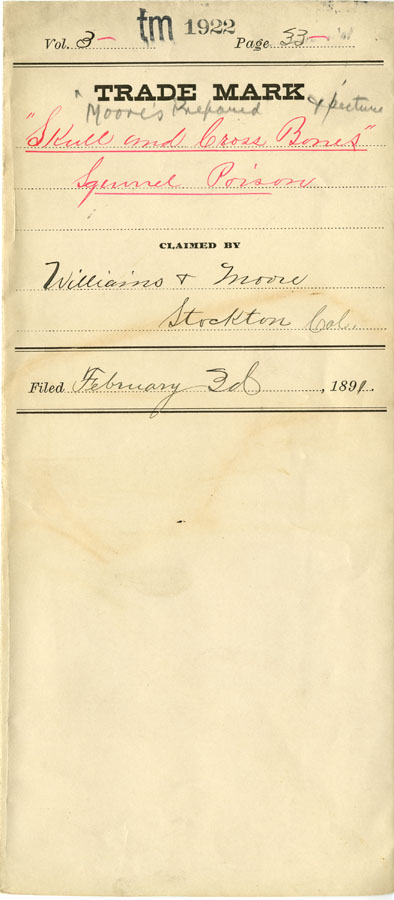 Vol. 3 tm 1922 Page 33
TRADE MARK
"Moore's Prepared & picture
"Skull and Cross Bones"
Squirrel Poison
CLAIMED BY
Williams & Moore
Stockton Cal.
Filed February 3d, 1891.